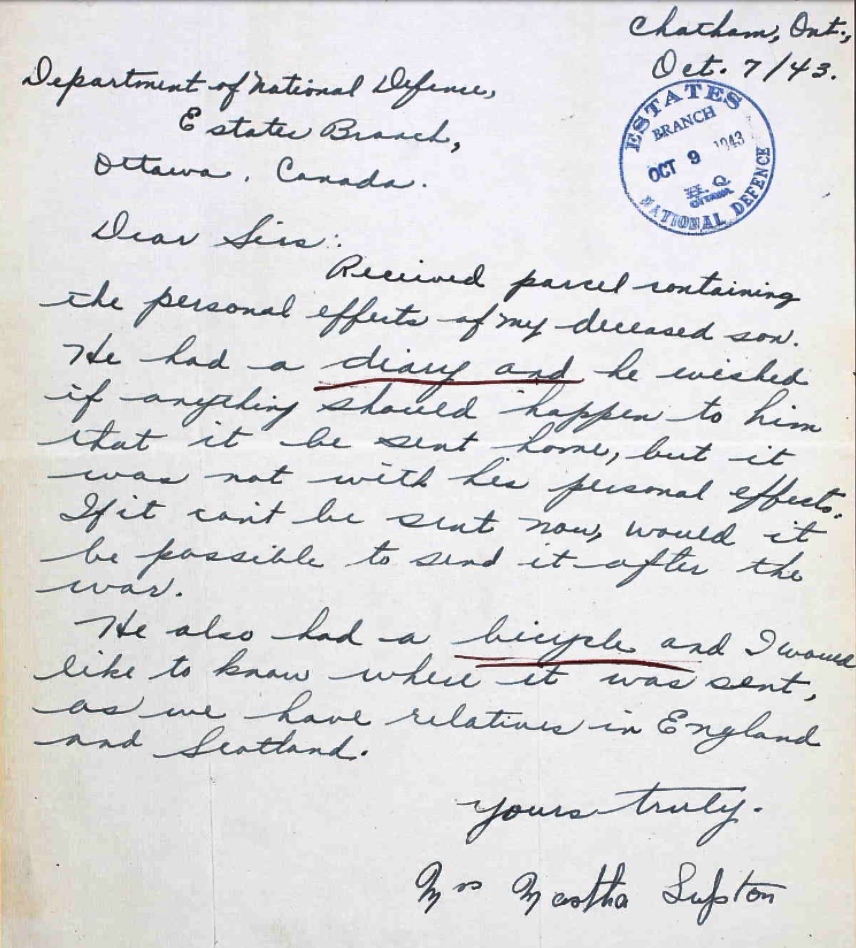 Chatham, Ont.,
Oct. 7/43.
Department of National Defense,
Estates Branch,
Ottawa, Canada.
ESTATES
BRANCH
OCT 9 1943
H. Q.
OTTAWA
NATIONAL DEFENCE
Dear Sirs:
Received parcel containing
the personal effects of my deceased son.
He had a diary and he wished
if anything should happen to him
that it be sent home, but it
was not with his personal effects.
If it can't be sent now, would it
be possible to send it after the
war.
He also had a bicycle and I would
like to know where it was sent,
as we have relatives in England
and Scotland.
Yours truly.
Mrs Martha Lupton